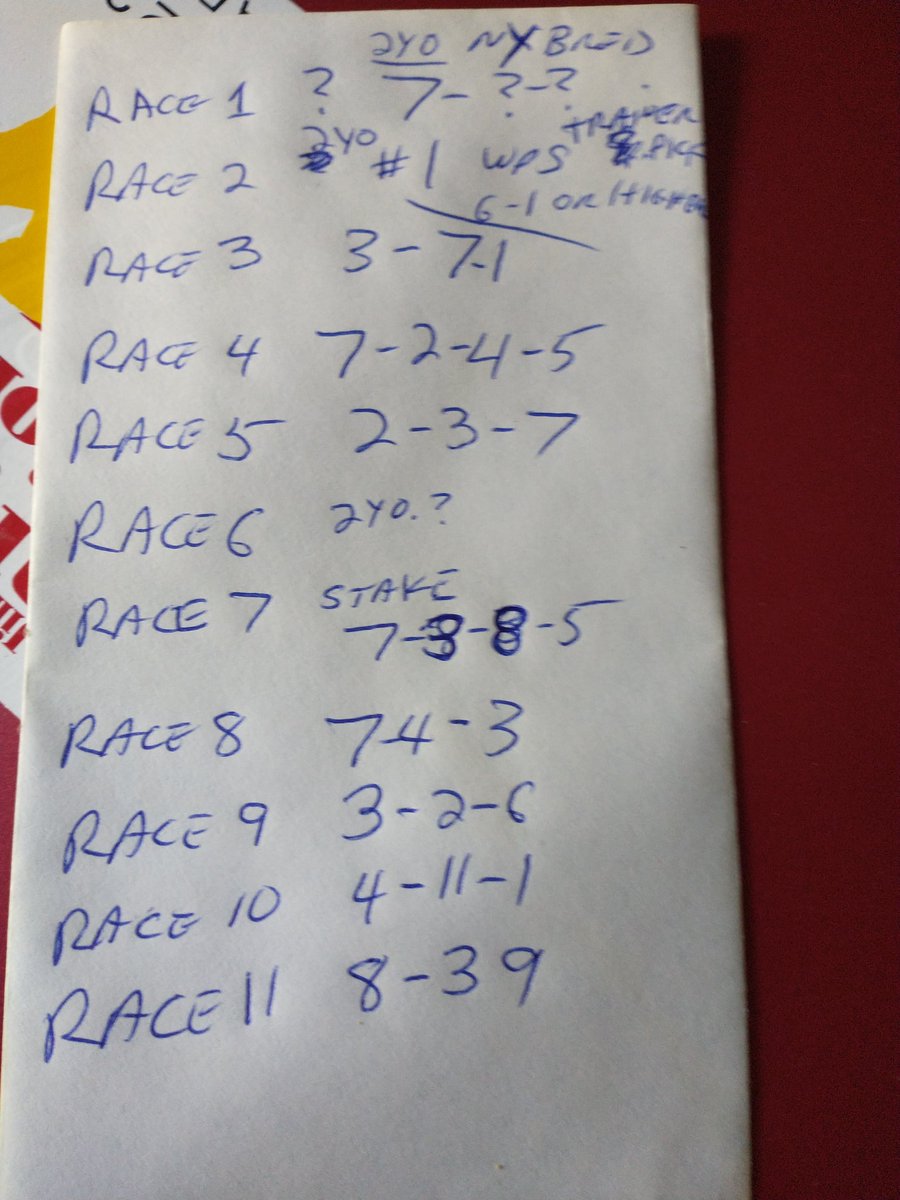 2YO NY BRED
RACE 1 ? 7-?-?
TRAINER
RACE 2 2YO #1 WPS
6-1 OR HIGHER
RACE 3 3-7-1
RACE 4 7-2-4-5
RACE 5 2-3-7
RACE 6 2YO.?
RACE 7 STAKE
7-3-8-5
RACE 8 74-3
RACE 9 3-2-6
RACE 10 4-11-1
RACE 11 8-39